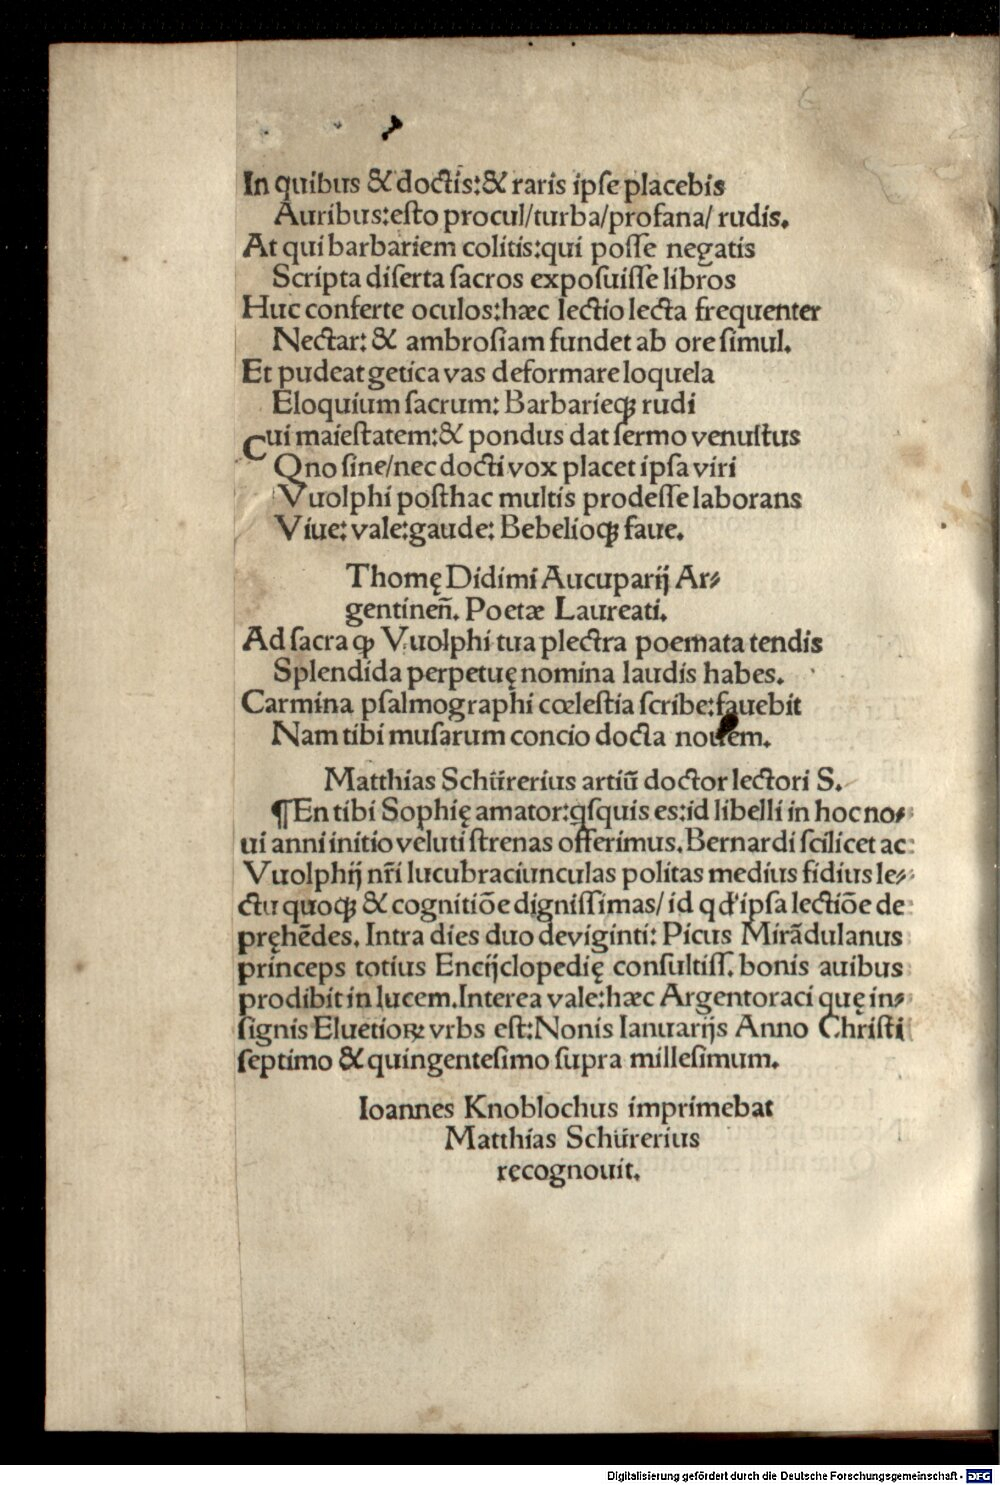 In quibus & doctis:& raris ipſe placebis
Auribus:eſto procul/turba/profana/ rudis.
At qui barbariem colitis:qui poſſe negatis
Scripta diſerta ſacros expoſuiſſe libros
Huc conferte oculos:hæc lectio lecta frequenter
Nectar: & ambroſiam fundet ab ore ſimul.
Et pudeat getica vas deformare loquela
Eloquium ſacrum: Barbarieqꝫ rudi
Cui maieſtatem:& pondus dat ſermo venuſtus
Qno ſine/nec docti vox placet ipſa viri
Vuolphi poſthac multis prodeſſe laborans
Viue: vale:gaude: Bebelioqꝫ faue.
Thomę Didimi Aucuparij Ar⸗
gentineñ. Poetæ Laureati.
Ad ſacra ꝙ Vuolphi tua plectra poemata tendis
Splendida perpetuę nomina laudis habes.
Carmina pſalmographi cœleſtia ſcribe:fauebit
Nam tibi muſarum concio docta nouem.
Matthias Schürerius artiū doctor lectori S.
¶En tibi Sophię amator:qſquis es:id libelli in hoc no⸗
ui anni initio veluti ſtrenas offerimus.Bernardi ſcilicet ac
Vuolphij nr̄i lucubraciunculas politas medius fidius le⸗
ctu quoqꝫ & cognitiōe digniſſimas/ id qđ ipſa lectiōe de
pręhēdes. Intra dies duo deviginti: Picus Mirādulanus
princeps totius Encijclopedię conſultiſſ. bonis auibus
prodibit in lucem.Interea vale:hæc Argentoraci quę in⸗
ſignis Eluetioꝝ vrbs eſt:Nonis Ianuarijs Anno Chriſti
ſeptimo & quingenteſimo ſupra milleſimum.
Ioannes Knoblochus imprimebat
Matthias Schürerius
recognouit.
Digitalisierung gefördert durch die Deutsche Forschungsgemeinschaft - DFG